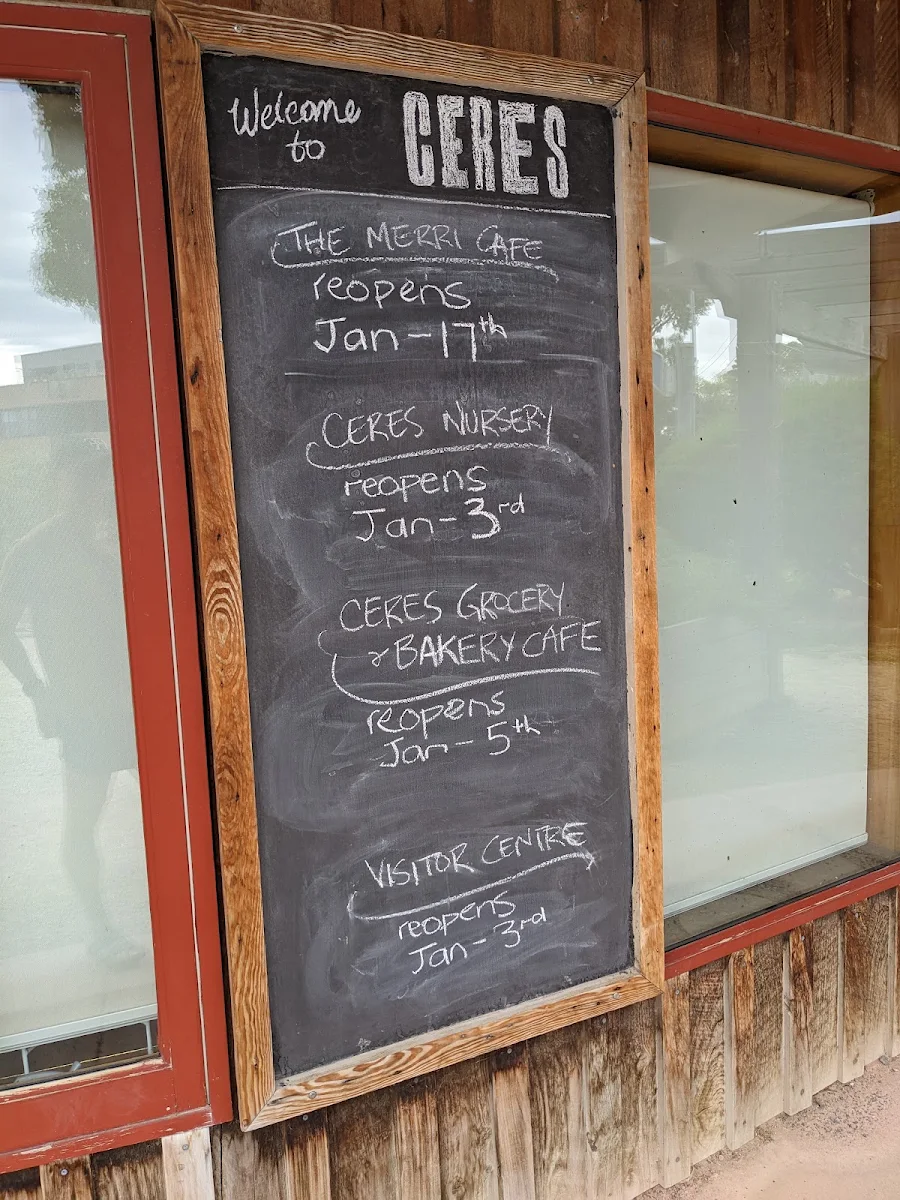 Welcome to CERES
THE MERRI CAFE
reopens
Jan-17th
CERES NURSERY
reopens
Jan-3rd
CERES GROCERY
& BAKERY CAFE
reopens
Jan-5th
VISITOR CENTRE
reopens
Jan-3rd